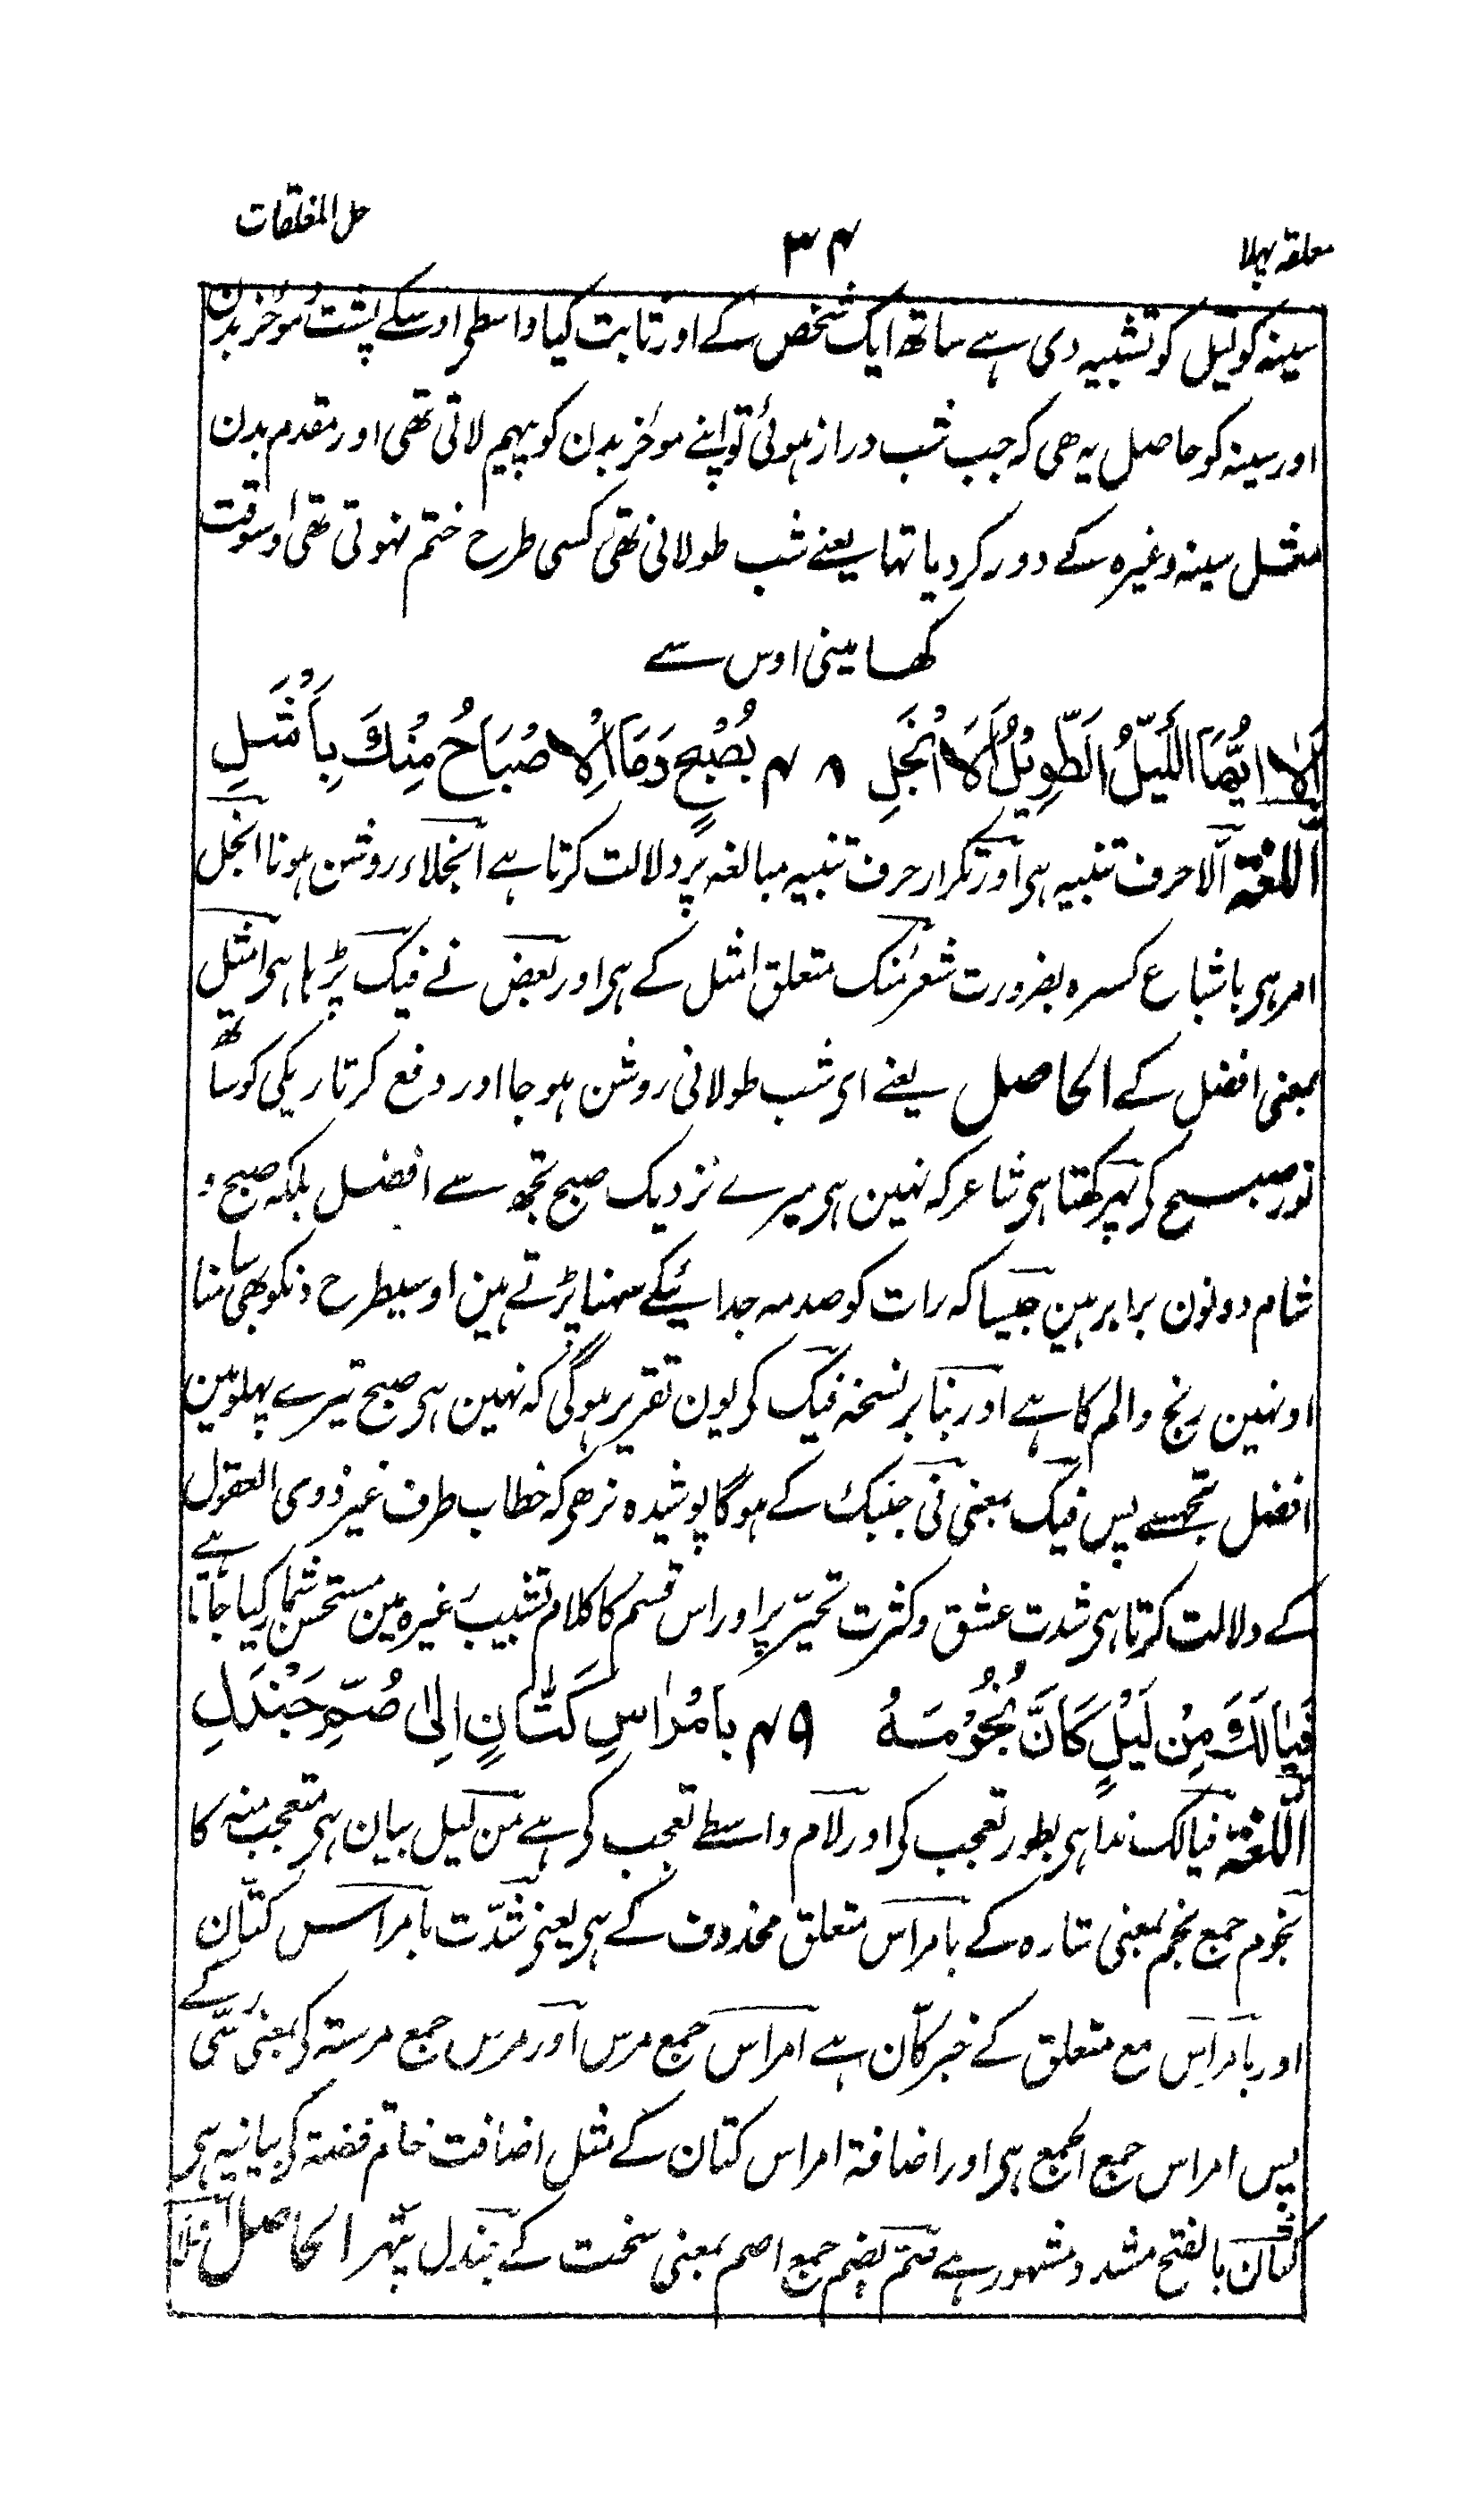 معلقہ پہلا ۳۴ حل المغلقات
سینہ کو لیل کو تشبیہ دی ہے ساتھ ایک شخص کے اور ثابت کیا واسطی اوسکے پشت مؤخر بدن
اور سینہ کو حاصل یہ ھی کہ جب شب دراز ہوئی تو اپنے موخر بدن کو پیہم لاتی تھی اور مقدم بدن
مثل سینہ وغیرہ کے دور کر دیا تہا یعنے شب طولانی تھی کسی طرح ختم نہوتی تھی اوسوقت
کھا مینی اوس سے
اَلَا اَيُّهَا اللَّيْلُ الطَّوِيْلُ اَلَا انْجَلِ ۴۸ بِصُبْحٍ وَمَا الْاِصْبَاحُ مِنْكَ بِاَمْثَلِ
اللغة آلا حرف تنبیہ ہی اور تکرار حرف تنبیہ مبالغہ پر دلالت کرتا ہے انجلاء روشن ہونا انجل
امر ہی باشباع کسرہ بضرورت شعر منک متعلق امثل کے ہی اور بعض نے فیک پڑہا ہی امثل
بمعنی افضل کے الحاصل یعنے ای شب طولانی روشن ہو جا اور دفع کر تاریکی کو ساتھ
نور صبح کی پہر کہتا ہی شاعر کہ نہین ہی میرے نزدیک صبح تجھ سے افضل بلکہ صبح و
شام دونون برابر ہین جیسا کہ رات کو صدمہ جدائیکے سہنا پڑتے ہین اوسیطرح دنکو بھی سامنا
اونہین رنج والم کا ہے اور بنابر نسخہ فیک کی یون تقریر ہوگی کہ نہین ہی صبح تیرے پہلو مین
افضل تجہسے پس فیک بمعنی فی جنبک کے ہوگا پوشیدہ نرھی کہ خطاب طرف غیر ذوی العقول
کے دلالت کرتا ہی شدت عشق و کثرت تحیّر پر اور اس قسم کا کلام تشبیب وغیرہ مین مستحسن شمار کیا جاتا ہے
فَيَا لَكَ مِنْ لَيْلٍ كَاَنَّ نُجُوْمَهُ ۴۹ بِاَمْرَاسِ كَتَّانٍ اِلٰى صُمِّ جَنْدَلِ
اللّغة فیالک ندا ہی بطور تعجب کی اور لام واسطے تعجب کی ہے من لیل بیان ہی متعجب منہ کا
نجوم جمع نجم بمعنی ستارہ کے بامراس متعلق محذوف کے ہی یعنی شدّت بامراس کتّان
اور بامراس مع متعلق کے خبر کاّن ہے امراس جمع مرس اور مرس جمع مرستہ کی بمعنی رسّی کے
پس امراس جمع الجمع ہی اور اضافة امراس کتان کے مثل اضافت خاتم فضة کی بیانیہ ہی
کتّان بالفتح مشدد مشہور ہے صم بضم جمع اصم بمعنی سخت کے جندل پتہر الحاصل